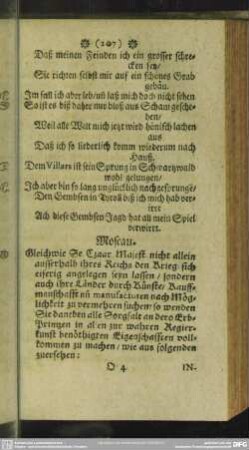 (207)
Daß meinen Feinden ich ein grosser schre-
cken sey/
Sie richten selbst mir auf ein schönes Grab
gebäu.
Im soll ich aber leb/ un laß mich doch nicht sehen
So ist es biß daher nur bloß aus Scham gesche-
hen/
Weil alle Welt mich jetzt wird hönisch lachen
aus
Daß ich so liederlich komm wiederum nach
Hauß.
Dem Villars ist sein Sprung in Schwartzwald
wohl gelungen/
Ich aber bin so lang unglücklich nachgesprungē/
Den Gembsen in Tyroll biß ich mich hab ver-
irrt
Ach diese Gembsen Jagd hat all mein Spiel
verwirrt.
Moscau.
Gleichwie Se Czaar Majest nicht allein
ausserhalb ihres Reichs den Krieg sich
eiferig angelegen seyn lassen/ sondern
auch ihre Länder durch Künste/ Kauff-
mannschafft uñ manufacturen nach Mög-
lichkeit zu vermehren suchen/ so wenden
Sie dantben alle Sorgfalt an dero Erb-
Printzen in allen zur wahren Regier-
kunst benöthigten Eigenschafften voll-
kommen zu machen/ wie aus folgenden
zuersehen:
O 4
IN-